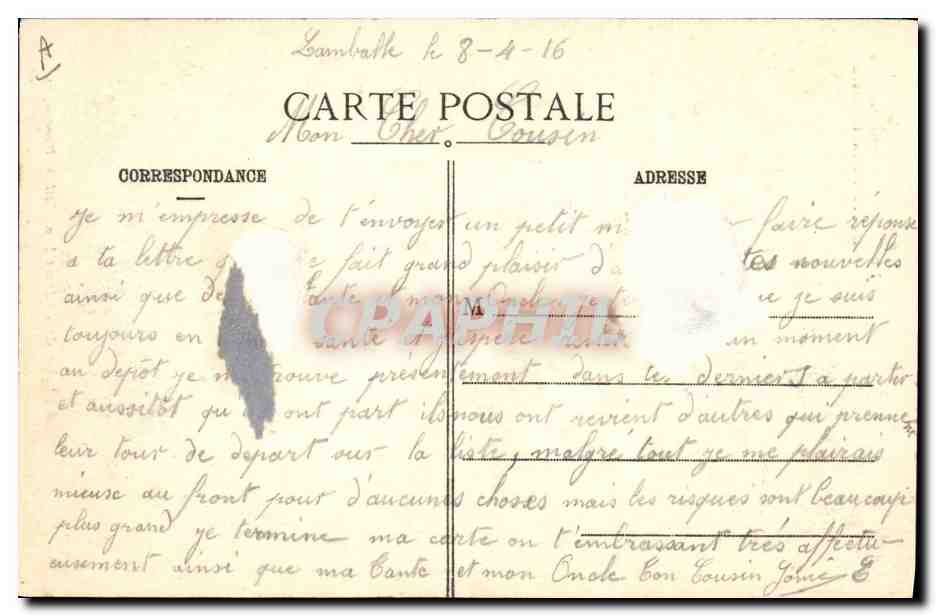 A
Lamballe le 8-4-16
CARTE POSTALE
Mon Cher Cousin
CORRESPONDANCE
ADRESSE
Je m'empresse de t'envoyer un petit faire réponse
a ta lettre fait grand plaisir tes nouvelles
ainsi que tante mon Oncle je je suis
M
CPAPHIL
toujours en santé j'éspére un moment
au depôt je trouve présentement dans les derniers a partir
et aussitôt qu ont part ils nous ont revient d'autres qui prennent
leur tour de depart sur la liste, malgré tout je me plairais
mieuse au front pour d'aucunes choses mais les risques sont beaucoup
plus grand je termine ma carte en t'embrassant trés affectu-
eusement ainsi que ma Tante et mon Oncle Ton Cousin